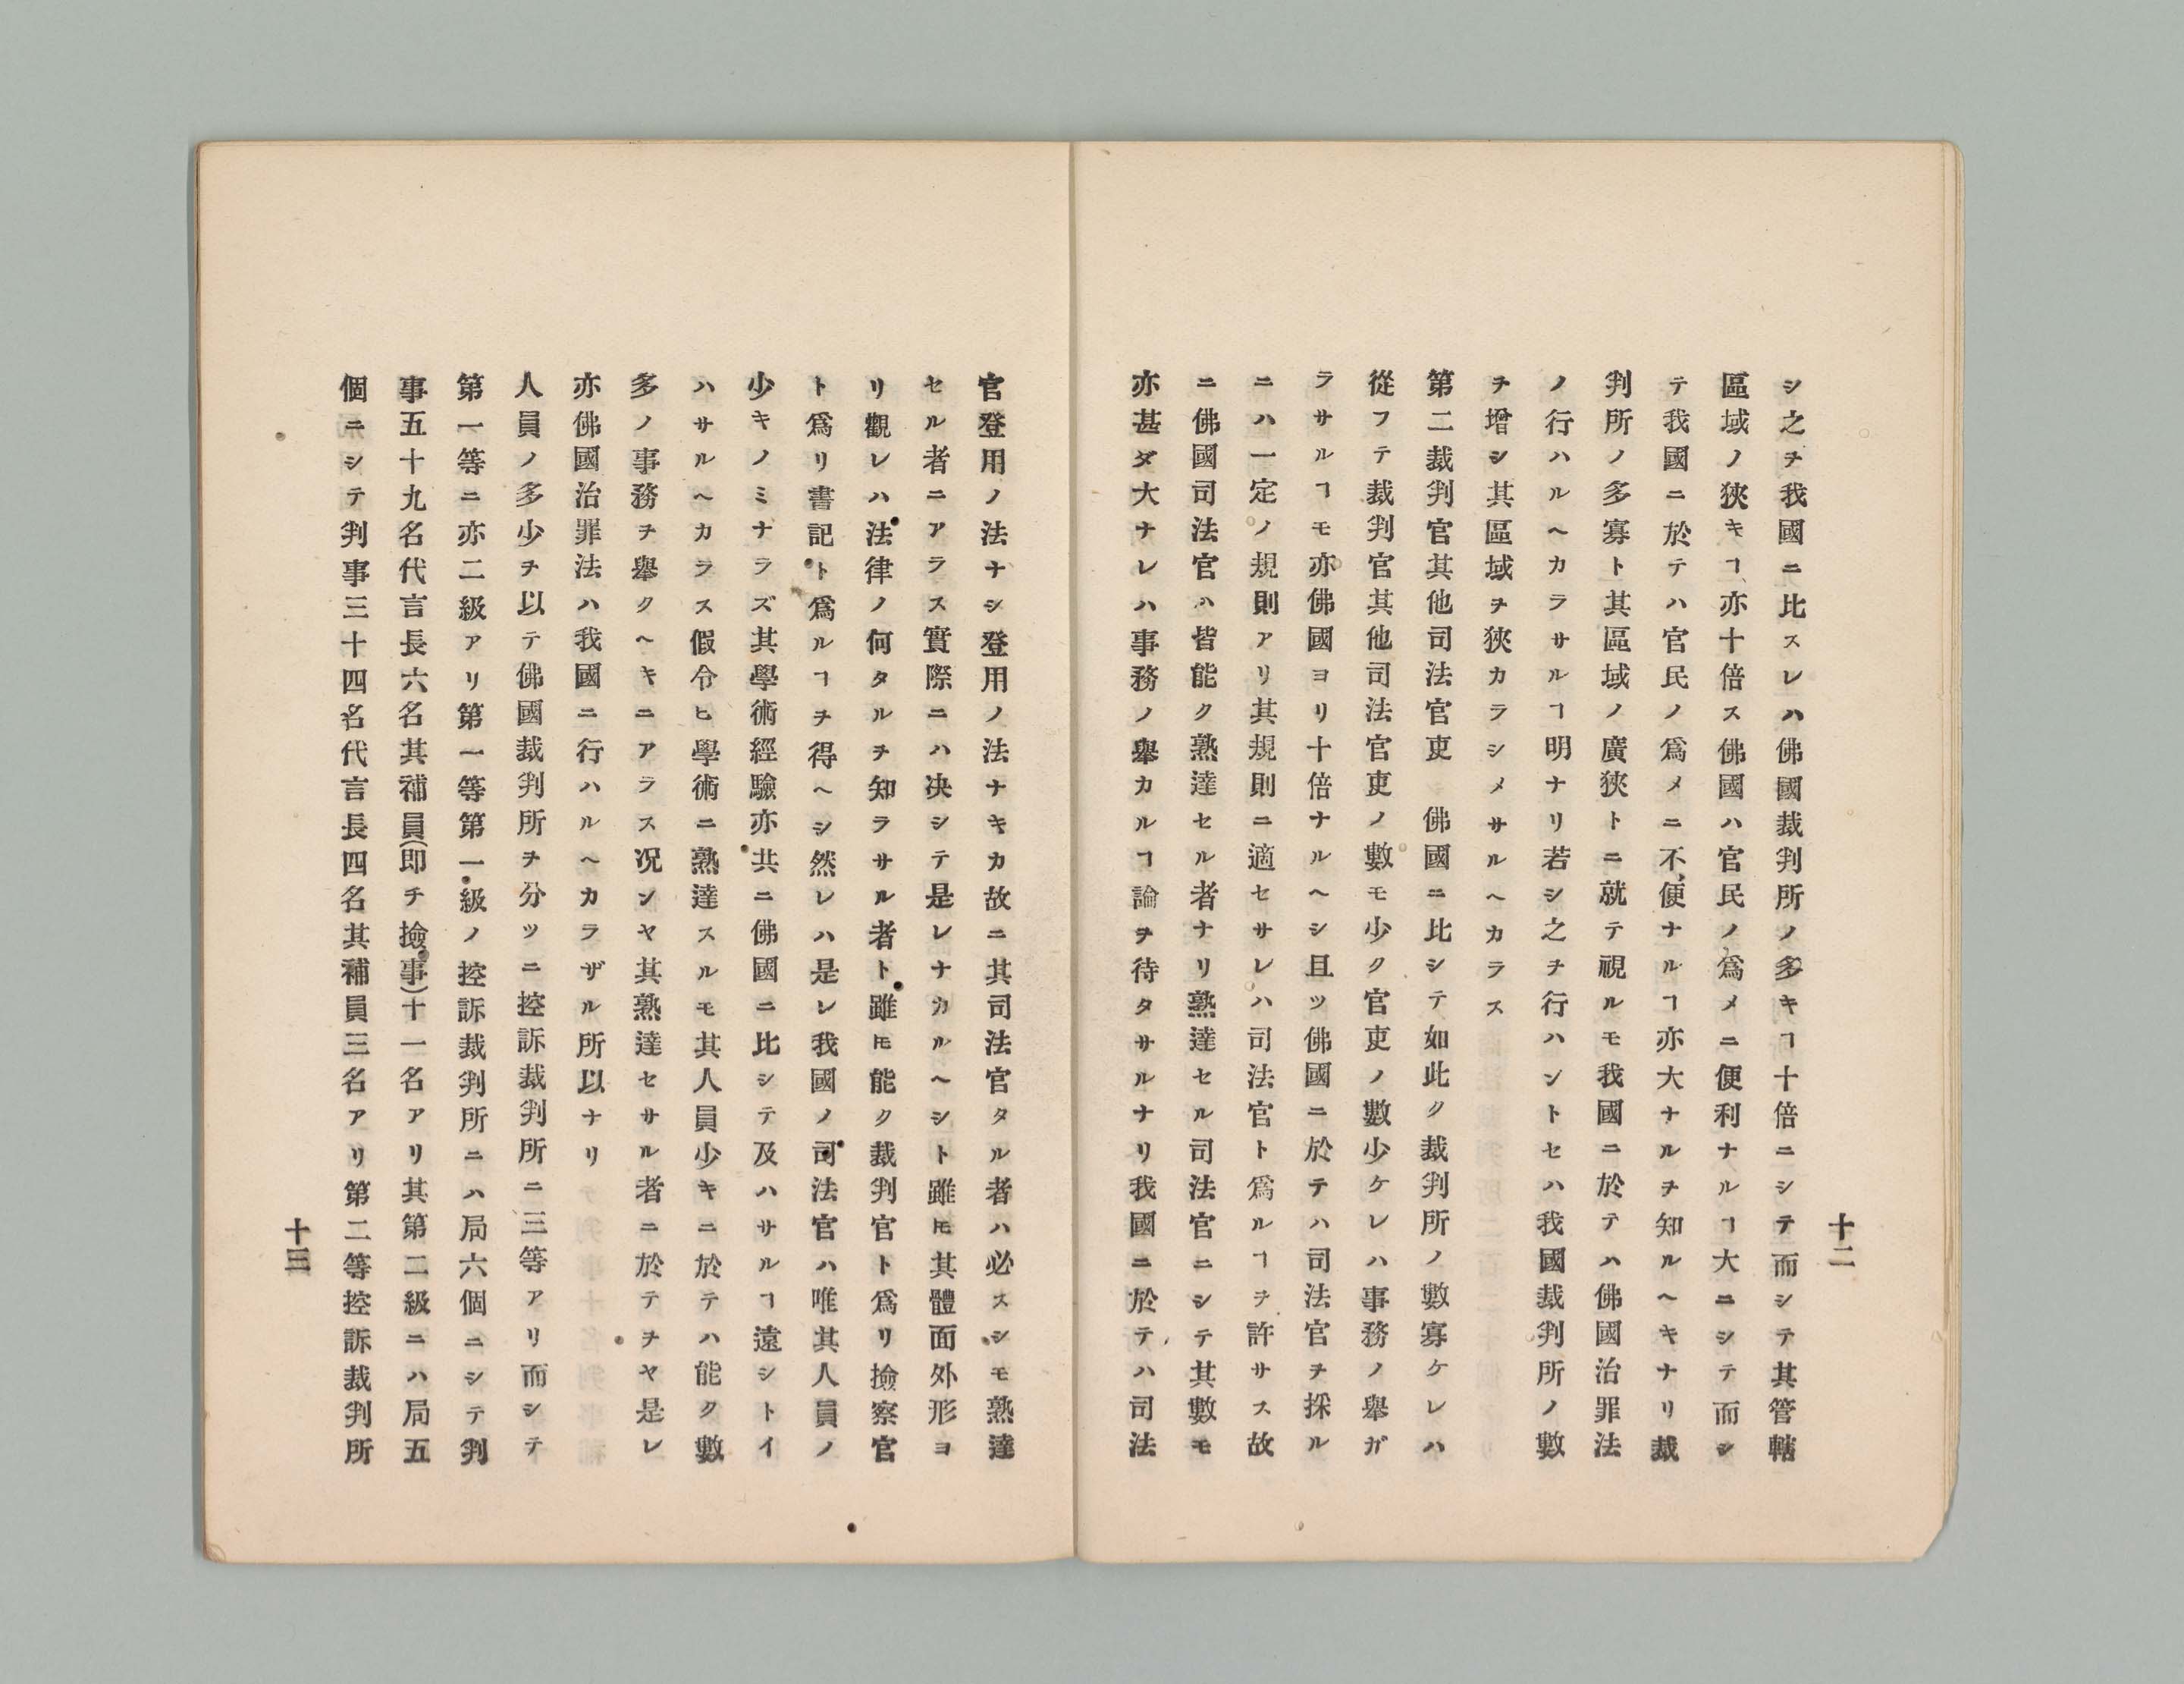 十二
シ之ヲ我國ニ比スレハ佛國裁判所ノ多キヿ十倍ニシテ而シテ其管轄
區域ノ狹キヿ亦十倍ス佛國ハ官民ノ爲メニ便利ナルヿ大ニシテ而シ
テ我國ニ於テハ官民ノ爲メニ不便ナルヿ亦大ナルヲ知ルヘキナリ裁
判所ノ多寡ト其區域ノ廣狹トニ就テ視ルモ我國ニ於テハ佛國治罪法
ノ行ハルヘカラサルヿ明ナリ若シ之ヲ行ハントセハ我國裁判所ノ數
ヲ增シ其區域ヲ狹カラシメサルヘカラス
第二裁判官其他司法官吏　佛國ニ比シテ如此ク裁判所ノ數寡ケレハ
從フテ裁判官其他司法官吏ノ數モ少ク官吏ノ數少ケレハ事務ノ舉ガ
ラサルヿモ亦佛國ヨリ十倍ナルヘシ且ツ佛國ニ於テハ司法官ヲ採ル
ニハ一定ノ規則アリ其規則ニ適セサレハ司法官ト爲ルヿヲ許サス故
ニ佛國司法官ハ皆能ク熟達セル者ナリ熟達セル司法官ニシテ其數モ
亦甚ダ大ナレハ事務ノ舉カルヿ論ヲ待タサルナリ我國ニ於テハ司法
官登用ノ法ナシ登用ノ法ナキカ故ニ其司法官タル者ハ必スシモ熟達
セル者ニアラス實際ニハ决シテ是レナカルヘシト雖𪜈其體面外形ヨ
リ觀レハ法律ノ何タルヲ知ラサル者ト雖𪜈能ク裁判官ト爲リ撿察官
ト爲リ書記ト爲ルヿヲ得ヘシ然レハ是レ我國ノ司法官ハ唯其人員ノ
少キノミナラズ其學術經驗亦共ニ佛國ニ比シテ及ハサルヿ遠シトイ
ハサルヘカラス假令ヒ學術ニ熟達スルモ其人員少キニ於テハ能ク數
多ノ事務ヲ舉クヘキニアラス况ンヤ其熟達セサル者ニ於テヲヤ是レ
亦佛國治罪法ハ我國ニ行ハルヘカラザル所以ナリ
人員ノ多少ヲ以テ佛國裁判所ヲ分ツニ控訴裁判所ニ三等アリ而シテ
第一等ニ亦二級アリ第一等第一級ノ控訴裁判所ニハ局六個ニシテ判
事五十九名代言長六名其補員(即チ撿事)十一名アリ其第二級ニハ局五
個ニシテ判事三十四名代言長四名其補員三名アリ第二等控訴裁判所
十三